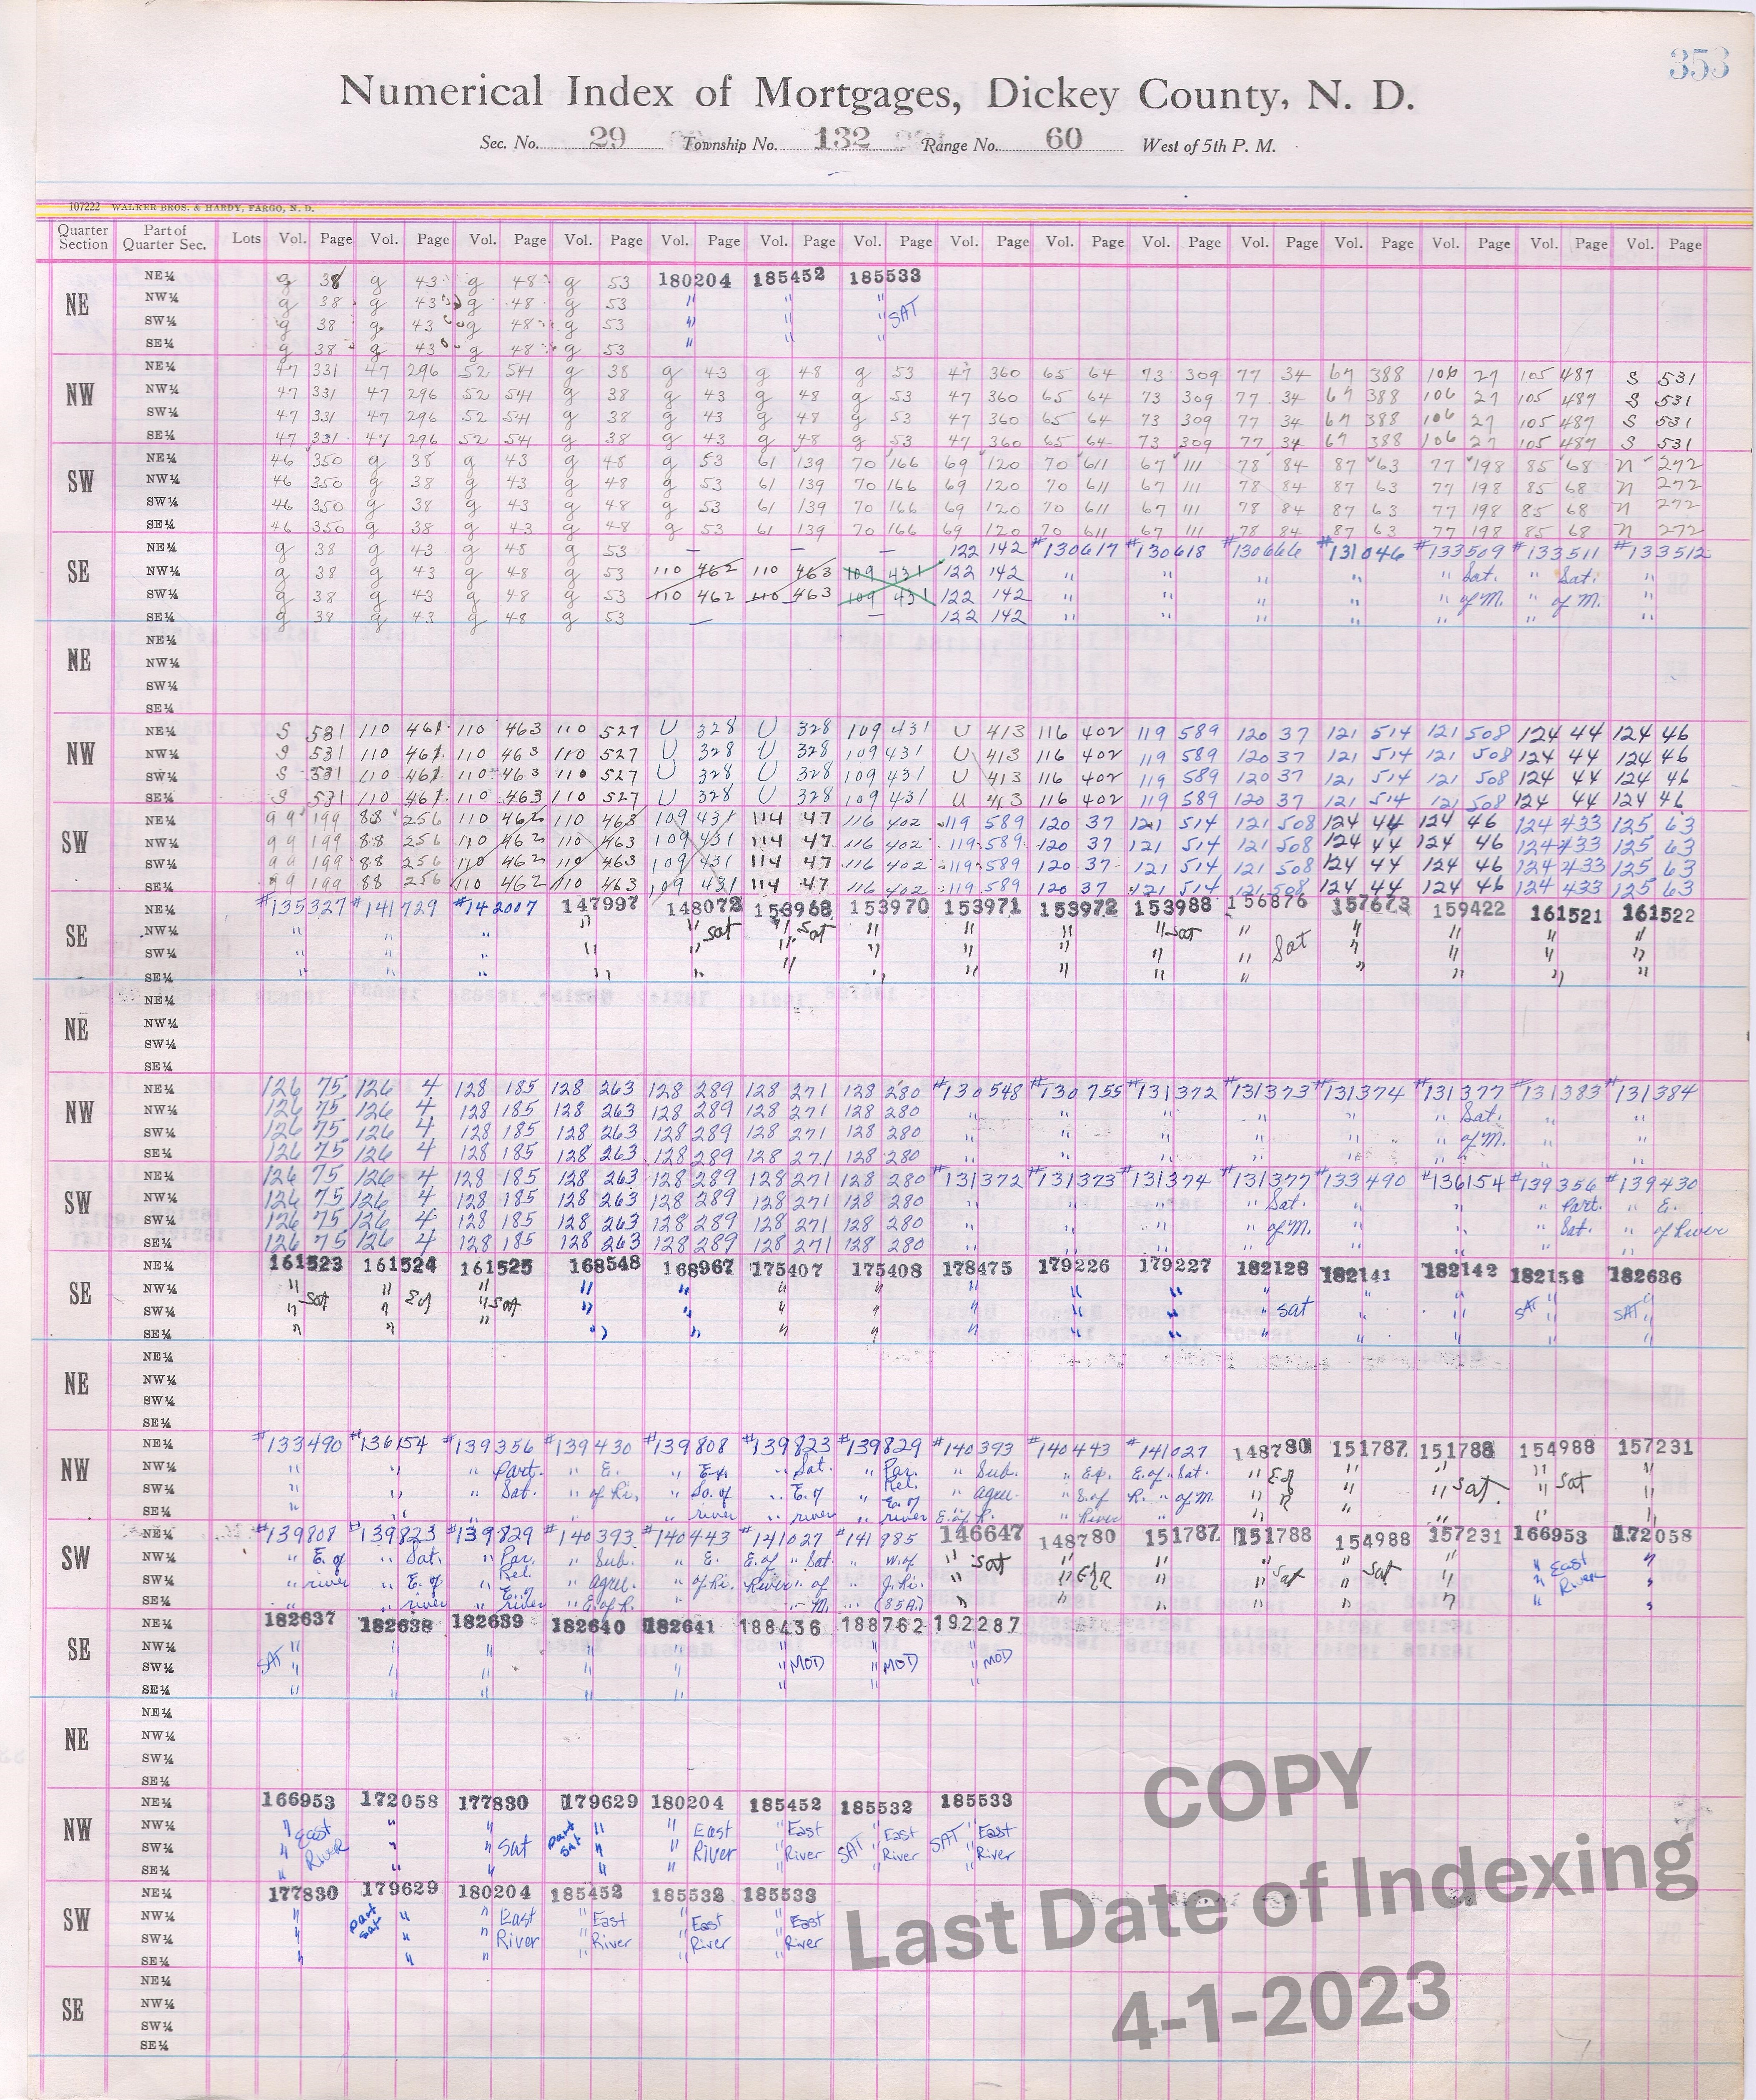 353
Numerical Index of Mortgages, Dickey County, N. D.
Sec. No. 29 Township No. 132 Range No. 60 West of 5th P. M.
107222 WALKER BROS. & HARDY, FARGO, N. D.
Quarter Section Part of Quarter Sec. Lots Vol. Page Vol. Page Vol. Page Vol. Page Vol. Page Vol. Page Vol. Page Vol. Page Vol. Page Vol. Page Vol. Page Vol. Page Vol. Page Vol. Page Vol. Page
NE
NE¼ g 38 g 43 g 48 g 53 180204 185452 185533
NW¼ g 38 g 43 g 48 g 53 " " "
SW¼ g 38 g 43 g 48 g 53 " " " SAT
SE¼ g 38 g 43 g 48 g 53 " " "
NW
NE¼ 47 331 47 296 52 541 g 38 g 43 g 48 g 53 47 360 65 64 73 309 77 34 67 388 106 27 105 487 S 531
NW¼ 47 331 47 296 52 541 g 38 g 43 g 48 g 53 47 360 65 64 73 309 77 34 67 388 106 27 105 487 S 531
SW¼ 47 331 47 296 52 541 g 38 g 43 g 48 g 53 47 360 65 64 73 309 77 34 67 388 106 27 105 487 S 531
SE¼ 47 331 47 296 52 541 g 38 g 43 g 48 g 53 47 360 65 64 73 309 77 34 67 388 106 27 105 487 S 531
SW
NE¼ 46 350 g 38 g 43 g 48 g 53 61 139 70 166 69 120 70 611 67 111 78 84 87 63 77 198 85 68 n 272
NW¼ 46 350 g 38 g 43 g 48 g 53 61 139 70 166 69 120 70 611 67 111 78 84 87 63 77 198 85 68 n 272
SW¼ 46 350 g 38 g 43 g 48 g 53 61 139 70 166 69 120 70 611 67 111 78 84 87 63 77 198 85 68 n 272
SE¼ 46 350 g 38 g 43 g 48 g 53 61 139 70 166 69 120 70 611 67 111 78 84 87 63 77 198 85 68 n 272
SE
NE¼ g 38 g 43 g 48 g 53 — — — 122 142 #130617 #130618 #130666 #131046 #133509 #133511 #133512
NW¼ g 38 g 43 g 48 g 53 110 462 110 463 109 431 122 142 " " " " " Sat. " Sat. "
SW¼ g 38 g 43 g 48 g 53 110 462 110 463 109 431 122 142 " " " " " of M. " of M. "
SE¼ g 38 g 43 g 48 g 53 — — 122 142 " " " " " " "
NE
NE¼
NW¼
SW¼
SE¼
NW
NE¼ S 531 110 461 110 463 110 527 U 328 U 328 109 431 U 413 116 402 119 589 120 37 121 514 121 508 124 44 124 46
NW¼ S 531 110 461 110 463 110 527 U 328 U 328 109 431 U 413 116 402 119 589 120 37 121 514 121 508 124 44 124 46
SW¼ S 531 110 461 110 463 110 527 U 328 U 328 109 431 U 413 116 402 119 589 120 37 121 514 121 508 124 44 124 46
SE¼ S 531 110 461 110 463 110 527 U 328 U 328 109 431 U 413 116 402 119 589 120 37 121 514 121 508 124 44 124 46
SW
NE¼ 99 199 88 256 110 462 110 463 109 431 114 47 116 402 119 589 120 37 121 514 121 508 124 44 124 46 124 433 125 63
NW¼ 99 199 88 256 110 462 110 463 109 431 114 47 116 402 119 589 120 37 121 514 121 508 124 44 124 46 124 433 125 63
SW¼ 99 199 88 256 110 462 110 463 109 431 114 47 116 402 119 589 120 37 121 514 121 508 124 44 124 46 124 433 125 63
SE¼ 99 199 88 256 110 462 110 463 109 431 114 47 116 402 119 589 120 37 121 514 121 508 124 44 124 46 124 433 125 63
SE
NE¼ #135327 #141729 #142007 147997 148072 153968 153970 153971 153972 153988 156876 157673 159422 161521 161522
NW¼ " " " " " Sat " Sat " " " " Sat " " " " "
SW¼ " " " " " " " " " " " Sat " " " "
SE¼ " " " " " " " " " " " " " " "
NE
NE¼
NW¼
SW¼
SE¼
NW
NE¼ 126 75 126 4 128 185 128 263 128 289 128 271 128 280 #130548 #130755 #131372 #131373 #131374 #131377 #131383 #131384
NW¼ 126 75 126 4 128 185 128 263 128 289 128 271 128 280 " " " " " " Sat. " "
SW¼ 126 75 126 4 128 185 128 263 128 289 128 271 128 280 " " " " " " of M. " "
SE¼ 126 75 126 4 128 185 128 263 128 289 128 271 128 280 " " " " " " " "
SW
NE¼ 126 75 126 4 128 185 128 263 128 289 128 271 128 280 #131372 #131373 #131374 #131377 #133490 #136154 #139356 #139430
NW¼ 126 75 126 4 128 185 128 263 128 289 128 271 128 280 " " " " Sat. " " " Part. " E.
SW¼ 126 75 126 4 128 185 128 263 128 289 128 271 128 280 " " " " of M. " " " Sat. " of River
SE¼ 126 75 126 4 128 185 128 263 128 289 128 271 128 280 " " " " " " " "
SE
NE¼ 161523 161524 161525 168548 168967 175407 175408 178475 179226 179227 182128 182141 182142 182158 182636
NW¼ " " " " " " " " " " " " " " "
SW¼ " Sat " " Sat " " " " " " " " Sat " " SAT " SAT "
SE¼ " " " " " " " " " " " " " "
NE
NE¼
NW¼
SW¼
SE¼
NW
NE¼ #133490 #136154 #139356 #139430 #139808 #139823 #139829 #140393 #140443 #141027 148780 151787 151788 154988 157231
NW¼ " " " Part. " E. " " Sat. " Par. " Sub. " E. of " Sat. " " " " "
SW¼ " " " Sat. " of Ri. " So. of " E. of " Rel. " agree. " R. " of M. " " " Sat. " Sat "
SE¼ " " " " " river " river E. of river E. of R. River " " " " "
SW
NE¼ #139808 #139823 #139829 #140393 #140443 #141027 #141985 146647 148780 151787 151788 154988 157231 166953 172058
NW¼ " E. of " Sat. " Par. " Sub. " E. E. of " Sat. " W. of " Sat " " " " " " East "
SW¼ " river " E. of " Rel. E. of " agree. " of Ri. River " of " J. Ri. " " " " Sat " Sat " " River "
SE¼ " river river " E. of R. " " M. (85A.) " " " " " " " "
SE
NE¼ 182637 182638 182639 182640 182641 188436 188762 192287
NW¼ " " " " " " " "
SW¼ SAT " " " " " " MOD " MOD " MOD
SE¼ " " " " " " " "
NE
NE¼
NW¼
SW¼
SE¼
NW
NE¼ 166953 172058 177830 179629 180204 185452 185532 185533
NW¼ " East " " Part " " East " East " East " East
SW¼ " River " " Sat Sat " " River " River SAT " River SAT " River
SE¼ " " " " " " " "
SW
NE¼ 177830 179629 180204 185452 185532 185533
NW¼ " Part " " East " East " East " East
SW¼ " Sat " " River " River " River " River
SE¼ " " " " " "
SE
NE¼
NW¼
SW¼
SE¼
COPY
Last Date of Indexing
4-1-2023